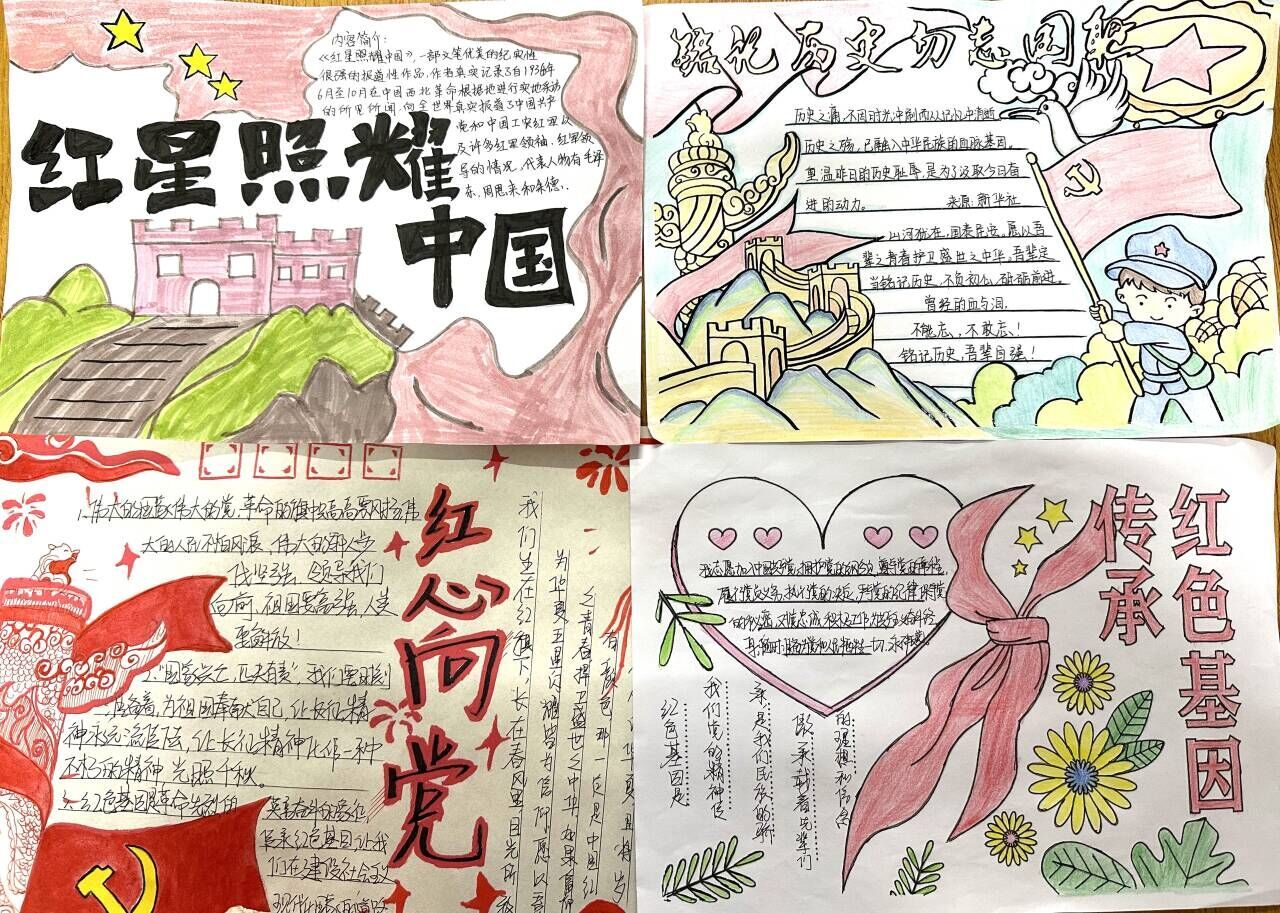 红星照耀
中国
内容简介:
《红星照耀中国》,一部文笔优美的纪实性
很强的报道性作品,作者真实记录了自1936年
6月至10月在中国西北革命根据地进行实地采访
的所见所闻,向全世界真实报道了中国共产
党和中国工农红军以
及许多红军领袖、红军领
导的情况,代表人物有毛泽
东、周恩来和朱德、
铭记历史勿忘国耻
历史之痛,不因时光冲刷而从记忆中消逝
历史之殇,已融入中华民族的血脉基因。
重温昨日的历史耻辱,是为了汲取今日奋
进的动力。 来源:新华社
山河犹在,国泰民安,愿以吾
辈之青春护卫盛世之中华,吾辈定
当铭记历史,不负初心,砥砺前进。
曾经的血与泪,
不能忘、不敢忘!
铭记历史,吾辈自强!
红心向党
1.伟大的国家伟大的党,革命的旗帜高高飘扬伟
大的人民不怕风浪,伟大的
坚强,领导我们
向前,祖国要富强,人类
要解放!
2."国家兴亡,匹夫有责"我们要时刻
准备着,为祖国奉献自己,让长征精
神永远流传,让长征精神化作一种
不朽的精神,光照千秋。
红色基因是革命先烈用
英勇奋斗的
传承红色基因,让我
们在建设社会主义
现代化
我们生在红旗下,长在春风里,目光所
为华夏,五星闪耀皆为信仰,愿以吾
之青春捍卫盛世之中华,如果
有颜色,那一定是中国红
红色基因
传承
我志愿加入中国共产党,拥护党的纲领,遵守党的章程,
履行党员义务,执行党的决定,严守党的纪律,保守党
的秘密,对党忠诚,积极工作,为共产主义奋斗终
身,随时准备为党和人民牺牲一切,永不叛党。
红色基因是
我们党的精神传
承,是我们民族的脐
带,承载着先辈们
的理想和信念